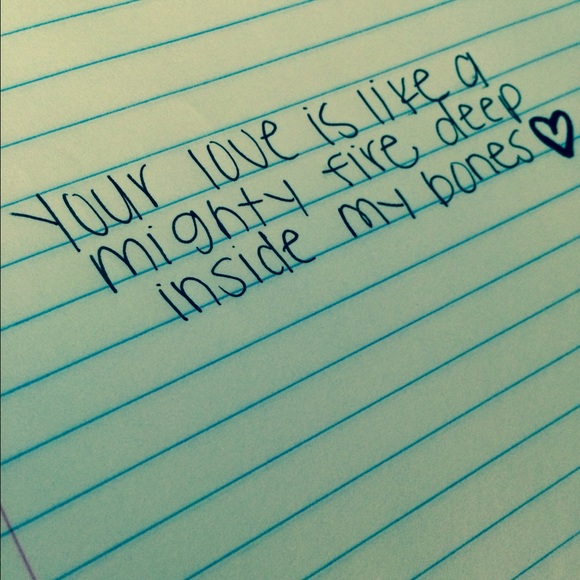 Your love is like a
mighty fire deep
inside my bones ♥